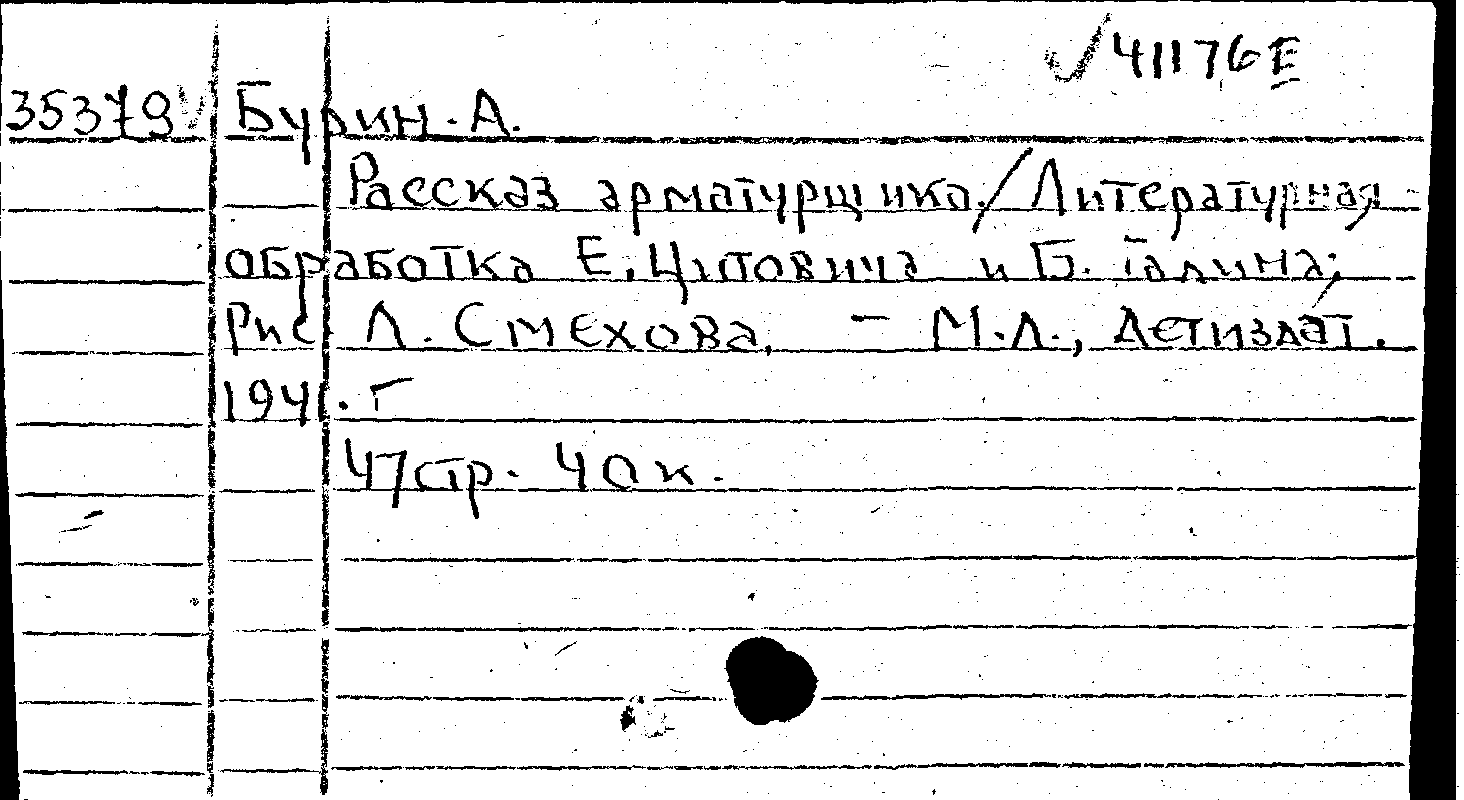 √41176Е
35379 Бурин. А.
Рассказ арматурщика./Литературная
обработка Е. Цитовича и Б. Галина;
Рис Л. Смехова, - М.Л., Детиздат.
1941. г
47стр. 40к.